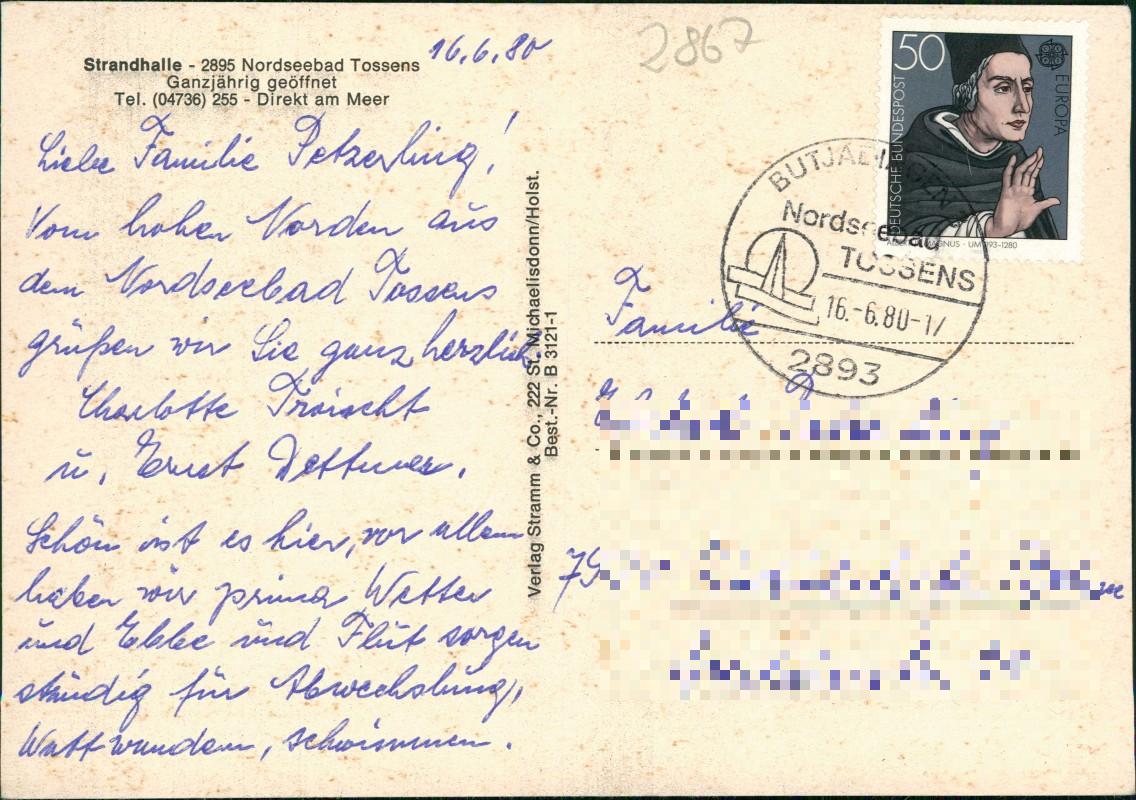 Strandhalle - 2895 Nordseebad Tossens
Ganzjährig geöffnet
Tel. (04736) 255 - Direkt am Meer
16.6.80
Liebe Familie Petzerling!
Vom hohen Norden aus
dem Nordseebad Tossens
grüßen wir Sie ganz herzlich.
Charlotte
u. Ernst Dettmer.
Schön ist es hier, vor allem
haben wir prima Wetter
und Ebbe und Flut sorgen
ständig für Abwechslung,
Wattwandern, schwimmen.
Verlag Stramm & Co., 222 St. Michaelisdonn/Holst.
Best.-Nr. B 3121-1
2867
50
DEUTSCHE BUNDESPOST
EUROPA
ALBERTUS MAGNUS · UM 1193-1280
BUTJADINGEN
Nordseebad
TOSSENS
16.-6.80-17
2893
Familie
79